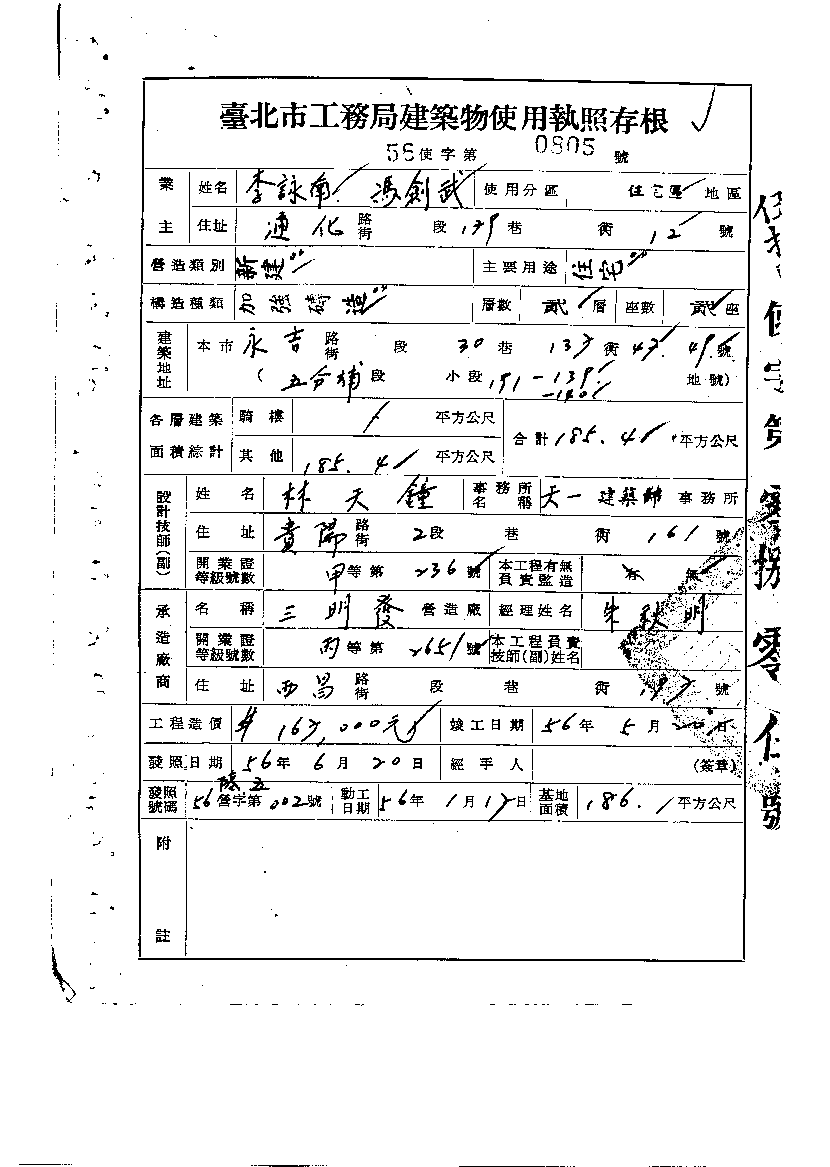 臺北市工務局建築物使用執照存根
56使字第 0805 號
業主 姓名 李詠南 馮劍武 使用分區 住宅區 地區
住址 通化 路街 段 139 巷 衖 12 號
營造類別 新建 主要用途 住宅
構造種類 加強磚造 層數 貳 層 座數 貳 座
建築地址 本市 永吉 路街 段 30 巷 137 衖 47. 49. 號
( 五分埔 段 小段 191-139 地號)
-140
各層建築面積綜計 騎樓 / 平方公尺 合計 185.41 平方公尺
其他 185.41 平方公尺
設計技師(副) 姓名 林天鐘 事務所名稱 天一建築師 事務所
住址 貴陽 路街 2段 巷 衖 161 號
開業證等級號數 甲等第 236 號 本工程有無負責監造 有 無
承造廠商 名稱 三明發 營造廠 經理姓名 朱秋明
開業證等級號數 丙等第 2651 號 本工程負責技師(副)姓名
住址 西昌 路街 段 巷 衖 號
工程造價 $ 167,000元 竣工日期 56年 5月 20日
發照日期 56年 6月 20日 經手人 (簽章)
發照號碼 56 營字第 002號 動工日期 56年 1月 17日 基地面積 186.1 平方公尺
附註
使字第零捌零伍號